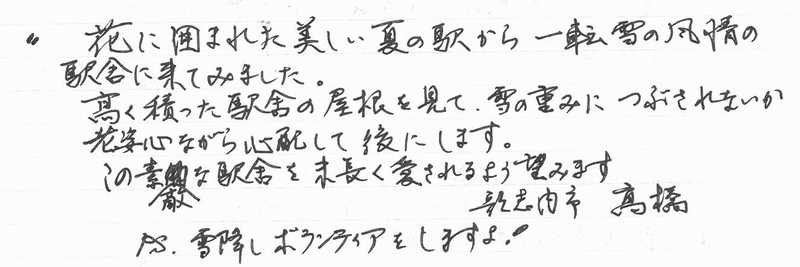 〃 花に囲まれた美しい夏の駅から一転雪の風情の
駅舎に来てみました。
高く積った駅舎の屋根を見て、雪の重みにつぶされないか
老婆心ながら心配して後にします。
この素敵な駅舎を末長く愛されるよう望みます
歌志内市 高橋
PS. 雪降しボランティアをしますよ!